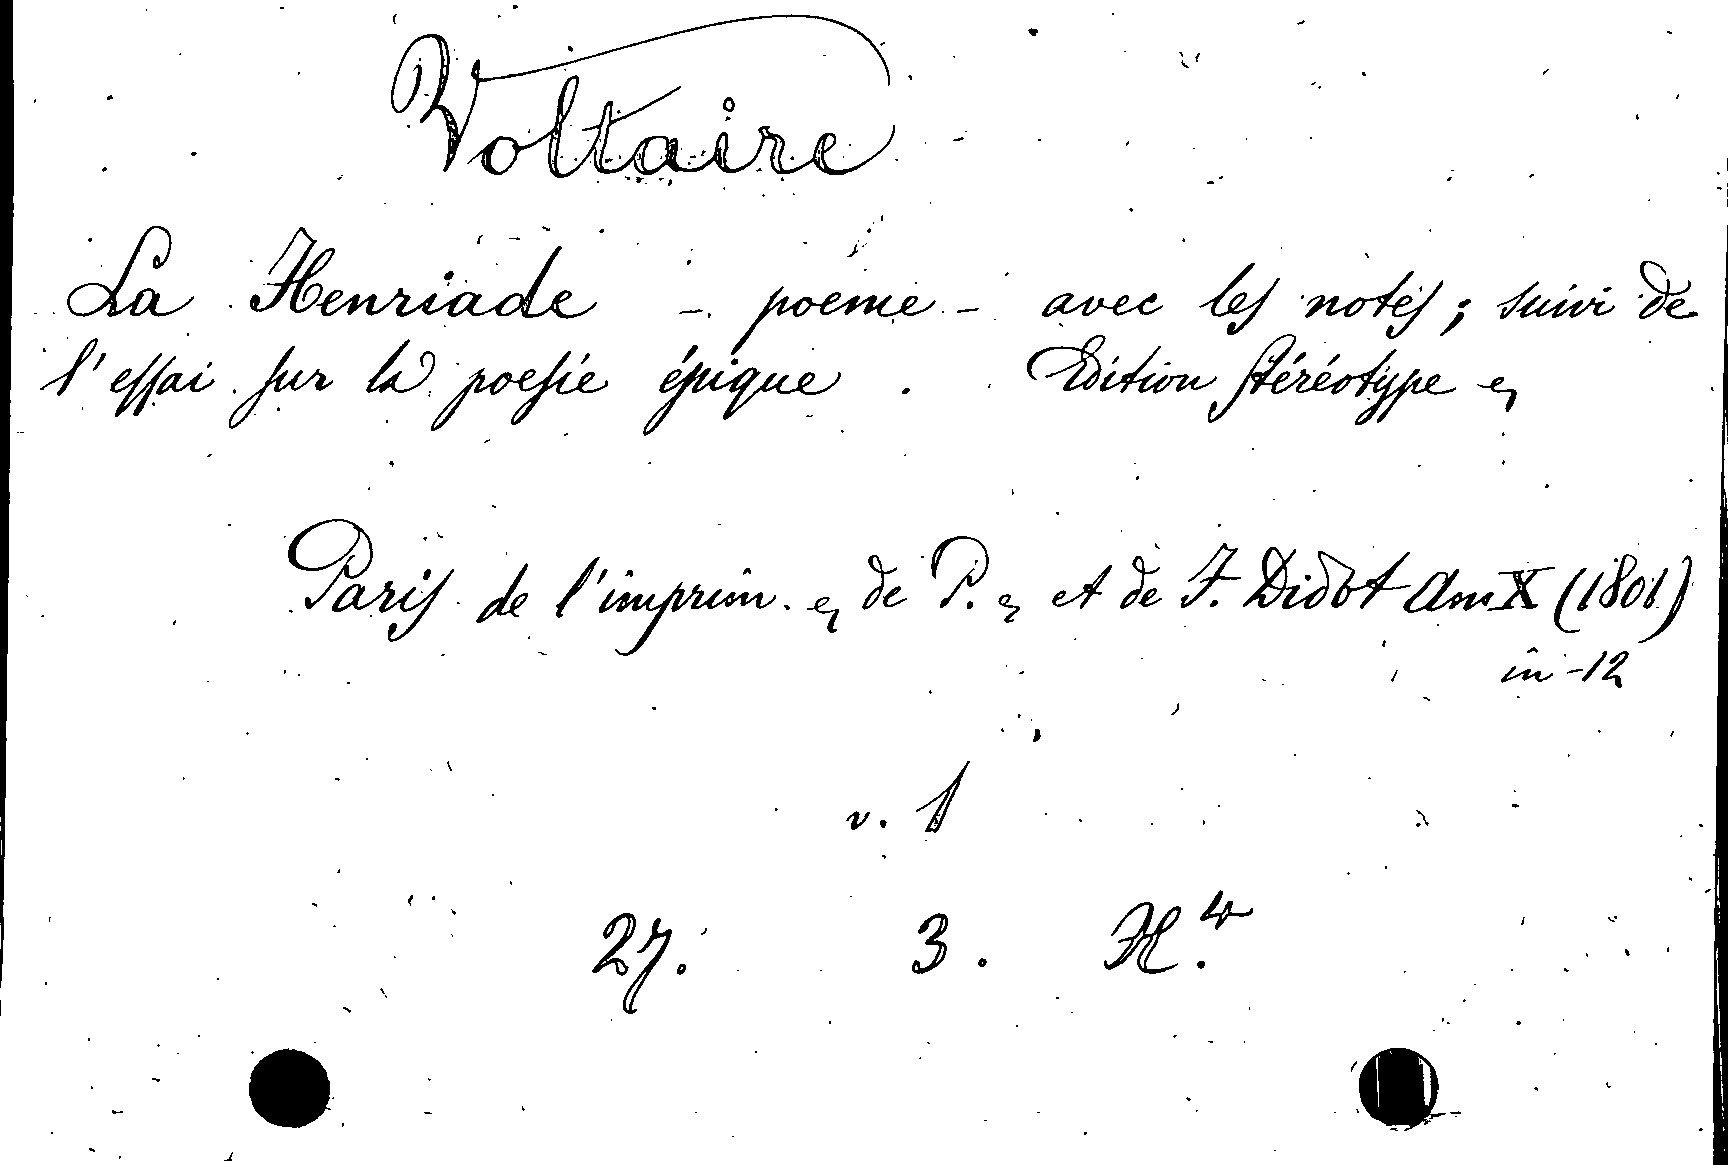 Voltaire
La Henriade - poeme - avec les notes ; suivi de
l'essai sur la poesie épique . Edition stéréotype
Paris de l'imprim. de P. et de F. Didot An X (1801)
in-12
v. 1
27. 3. H.